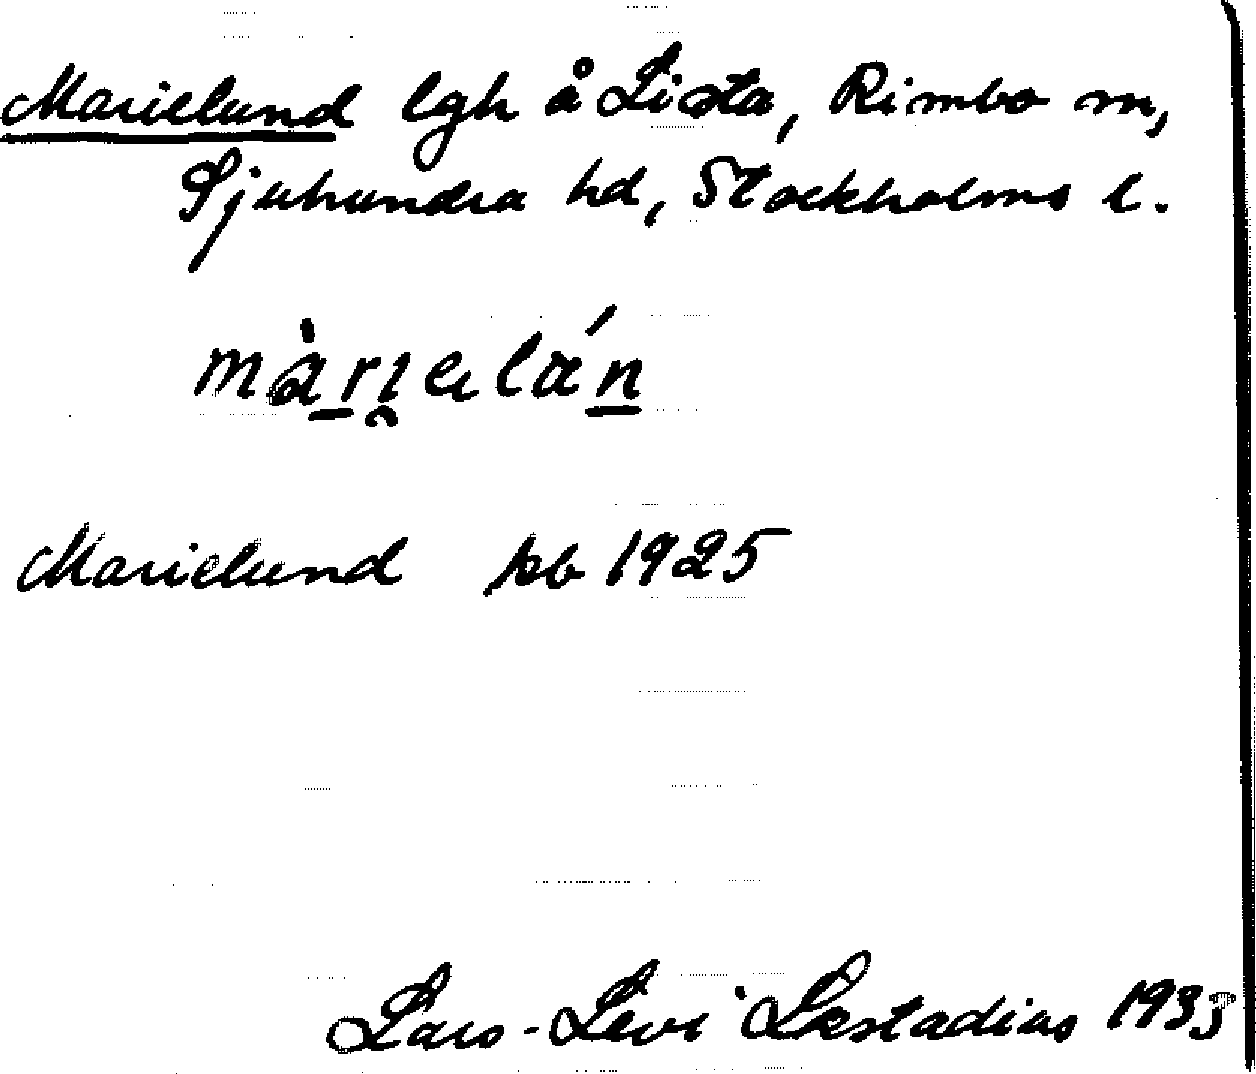 Marielund lgh å Lista, Rimbo sn,
Sjuhundra hd, Stockholms l.
Marielund kb 1925
Lars-Levi Læstadius 1933